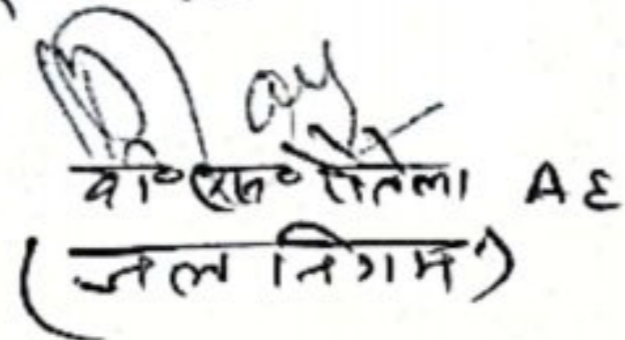 वी० एस० रौतेला AE
(जल निगम)